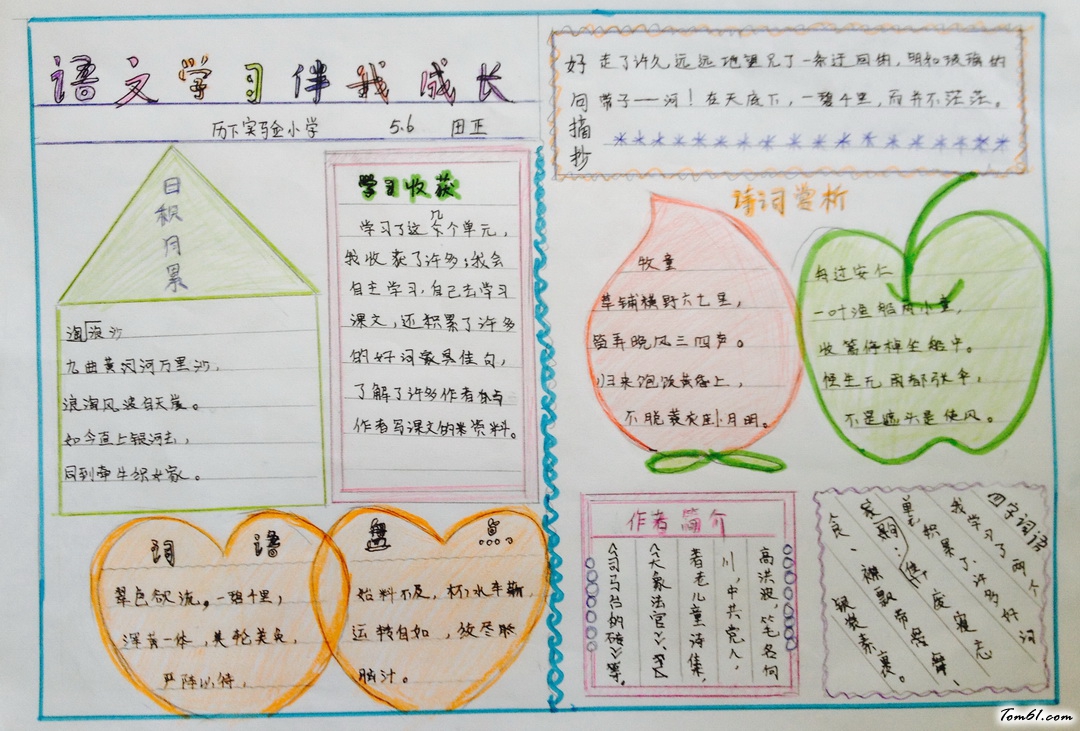 语文学习伴我成长
历下实验小学 5.6 田正
日积月累
浪淘沙
九曲黄河河万里沙,
浪淘风波自天涯。
如今直上银河去,
同到牵牛织女家。
学习收获
学习了这几个单元,
我收获了许多;我会
自主学习,自己去学习
课文,还积累了许多
的好词家具佳句,
了解了许多作者
作者写课文的资料。
词语盘点
翠色欲流。一碧千里,
浑为一体,美轮美奂,
严阵以待,
始料不及,杯水车薪,
运转自如,放尽脑
脑汁。
好句摘抄
走了许久,远远地望见了一条迂回的,明如玻璃的
带子——河!在天底下,一碧千里,而并不茫茫。
诗词赏析
牧童
草铺横野六七里,
笛弄晚风三四声。
归来饱饭黄昏上,
不脱蓑衣卧月明。
舟过安仁
一叶渔船两小童,
收篙停棹坐船中。
怪生无雨都张伞,
不是遮头是使风。
作者简介
高洪波,笔名向
川,中共党人,
著老儿童诗集,
《大象法官》、
《司马的砖》等。
四字词语
我学习了两个
单元,积累了许多好词
废寝忘
食、襟飘带舞、
银装素裹。
Tom61.com